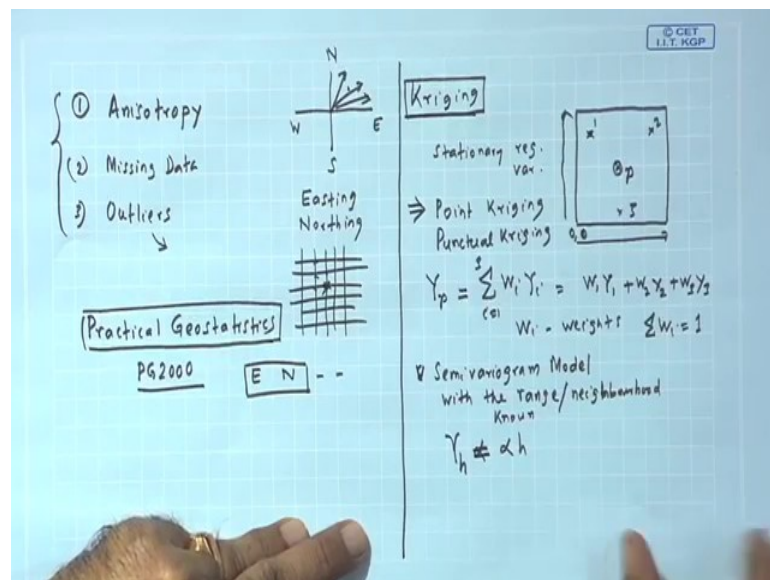 © CET
I.I.T. KGP
① Anisotropy
(2) Missing Data
3) Outliers
N
W E
S
Easting
Northing
Practical Geostatistics
PG2000
E N - -
Kriging
Stationary reg.
var.
⇒ Point Kriging
Punctual Kriging
x¹ x²
p
x 3
0,0
Y_p = Σ W_i Y_i = W_1 Y_1 + W_2 Y_2 + W_3 Y_3
W_i - weights Σ W_i = 1
Semivariogram Model
with the range/neighbourhood
known
γ_h = αh